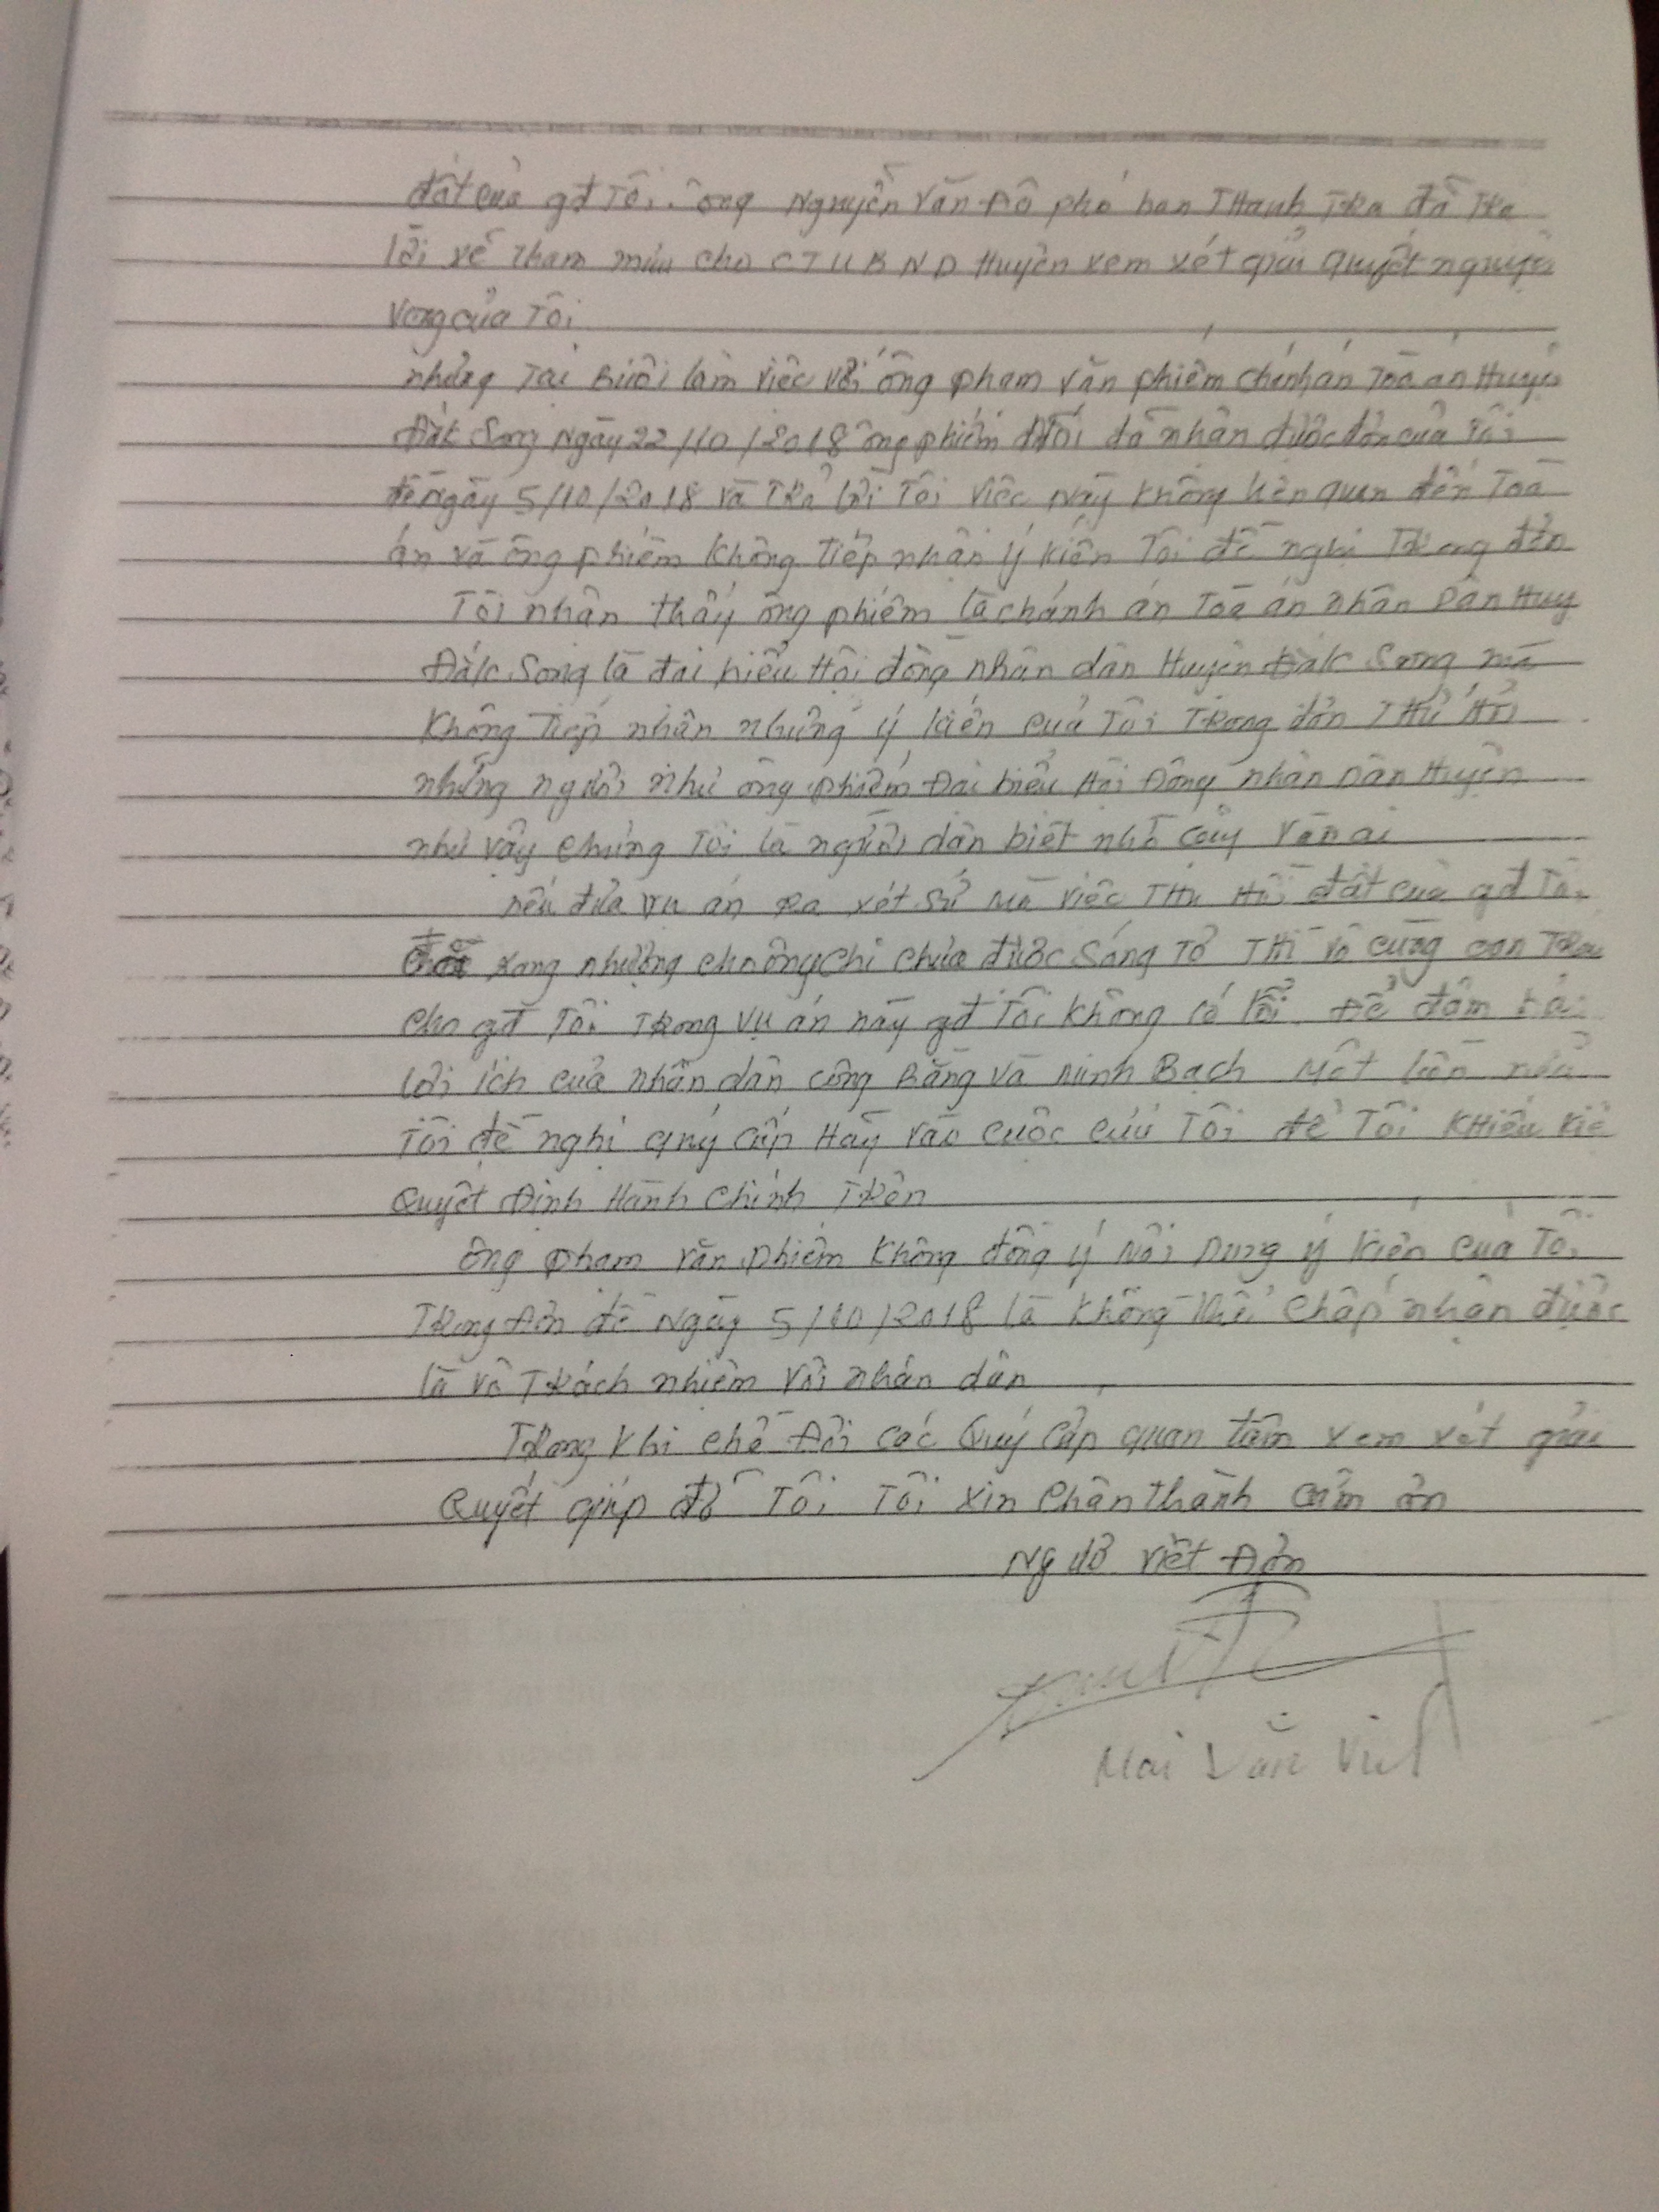 đất của gđ Tôi. ông Nguyễn Văn Đô phó ban THanh TRa đã TRa
lời về Tham mưu cho CTUBND Huyện xem xét giải quyết nguyện
Vọng của Tôi
nhưng Tại Buổi làm việc với ông phạm văn phiếm chánh án Toà án Huyện
Đăk Song Ngày 22/10/2018 ông phiếm đã nhận được đơn của Tôi
đề ngày 5/10/2018 và TRả lời Tôi việc này không liên quan đến Toà
án và ông phiếm không Tiếp nhận ý kiến Tôi đề nghị TRong đơn
Tôi nhận thấy ông phiếm là chánh án Toà án nhân Dân Huy
Đăk Song là đại biểu Hội đồng nhân dân Huyện Đăk Song mà
không Tiếp nhận những ý kiến của Tôi TRong đơn THử Hỏi
những người như ông phiếm Đại biểu Hội Đồng nhân Dân Huyện
như vậy chúng Tôi là người dân biết nhờ cậy vào ai
nếu đưa vụ án Ra xét sử mà việc THu Hồi đất của gđ Tôi
sang nhượng cho ông chi chưa được sáng Tỏ THì vô cùng oan TRái
cho gđ Tôi TRong vụ án này gđ Tôi không có lỗi. Để đảm bảo
lợi ích của nhân dân công Bằng và minh Bạch Một lần nữa
Tôi đề nghị quý cấp Hãy vào cuộc cứu Tôi để Tôi KHiếu kiệ
Quyết Định Hành chính TRên
ông phạm văn phiếm không đồng ý Nội Dung ý kiến của Tôi
TRong Đơn đề Ngày 5/10/2018 là không thể chấp nhận được
là vô TRách nhiệm với nhân dân
TRong khi chờ Đợi các Quý cấp quan tâm xem xét giải
Quyết giúp đỡ Tôi Tôi xin chân thành cảm ơn
Ngườ viết Đơn
Mai Văn